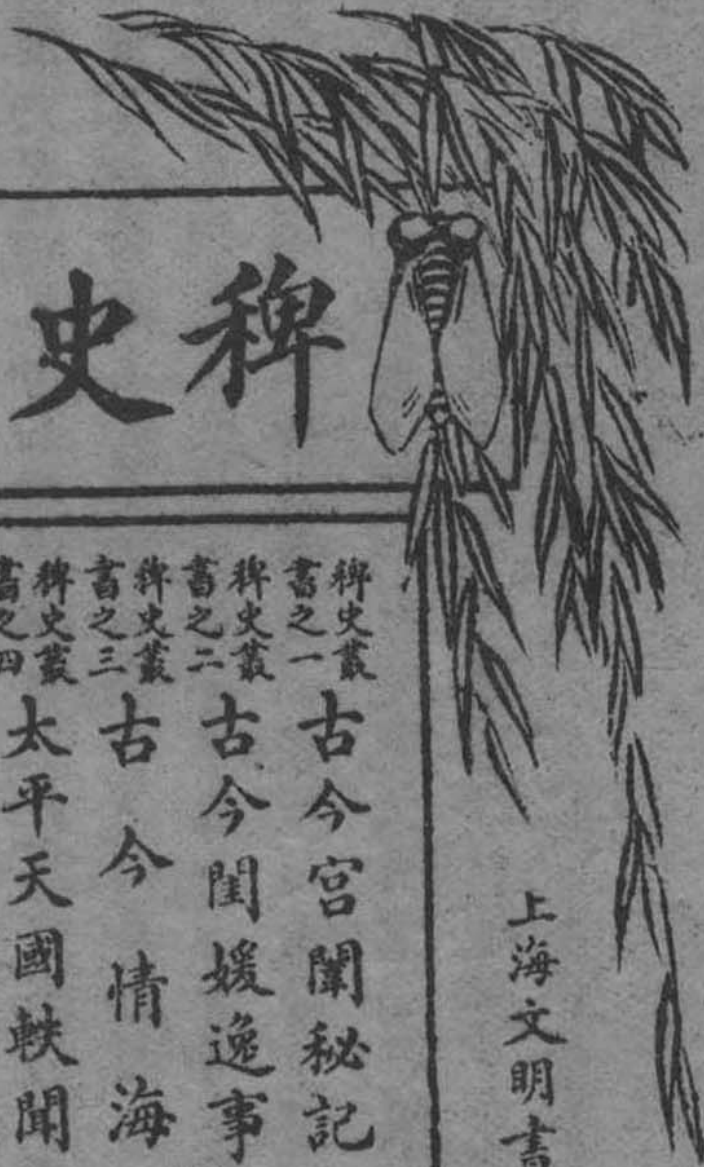 稗史
上海文明書
稗史叢書之一
古今宮闈秘記
稗史叢書之二
古今閨媛逸事
稗史叢書之三
古今情海
稗史叢書之四
太平天國軼聞